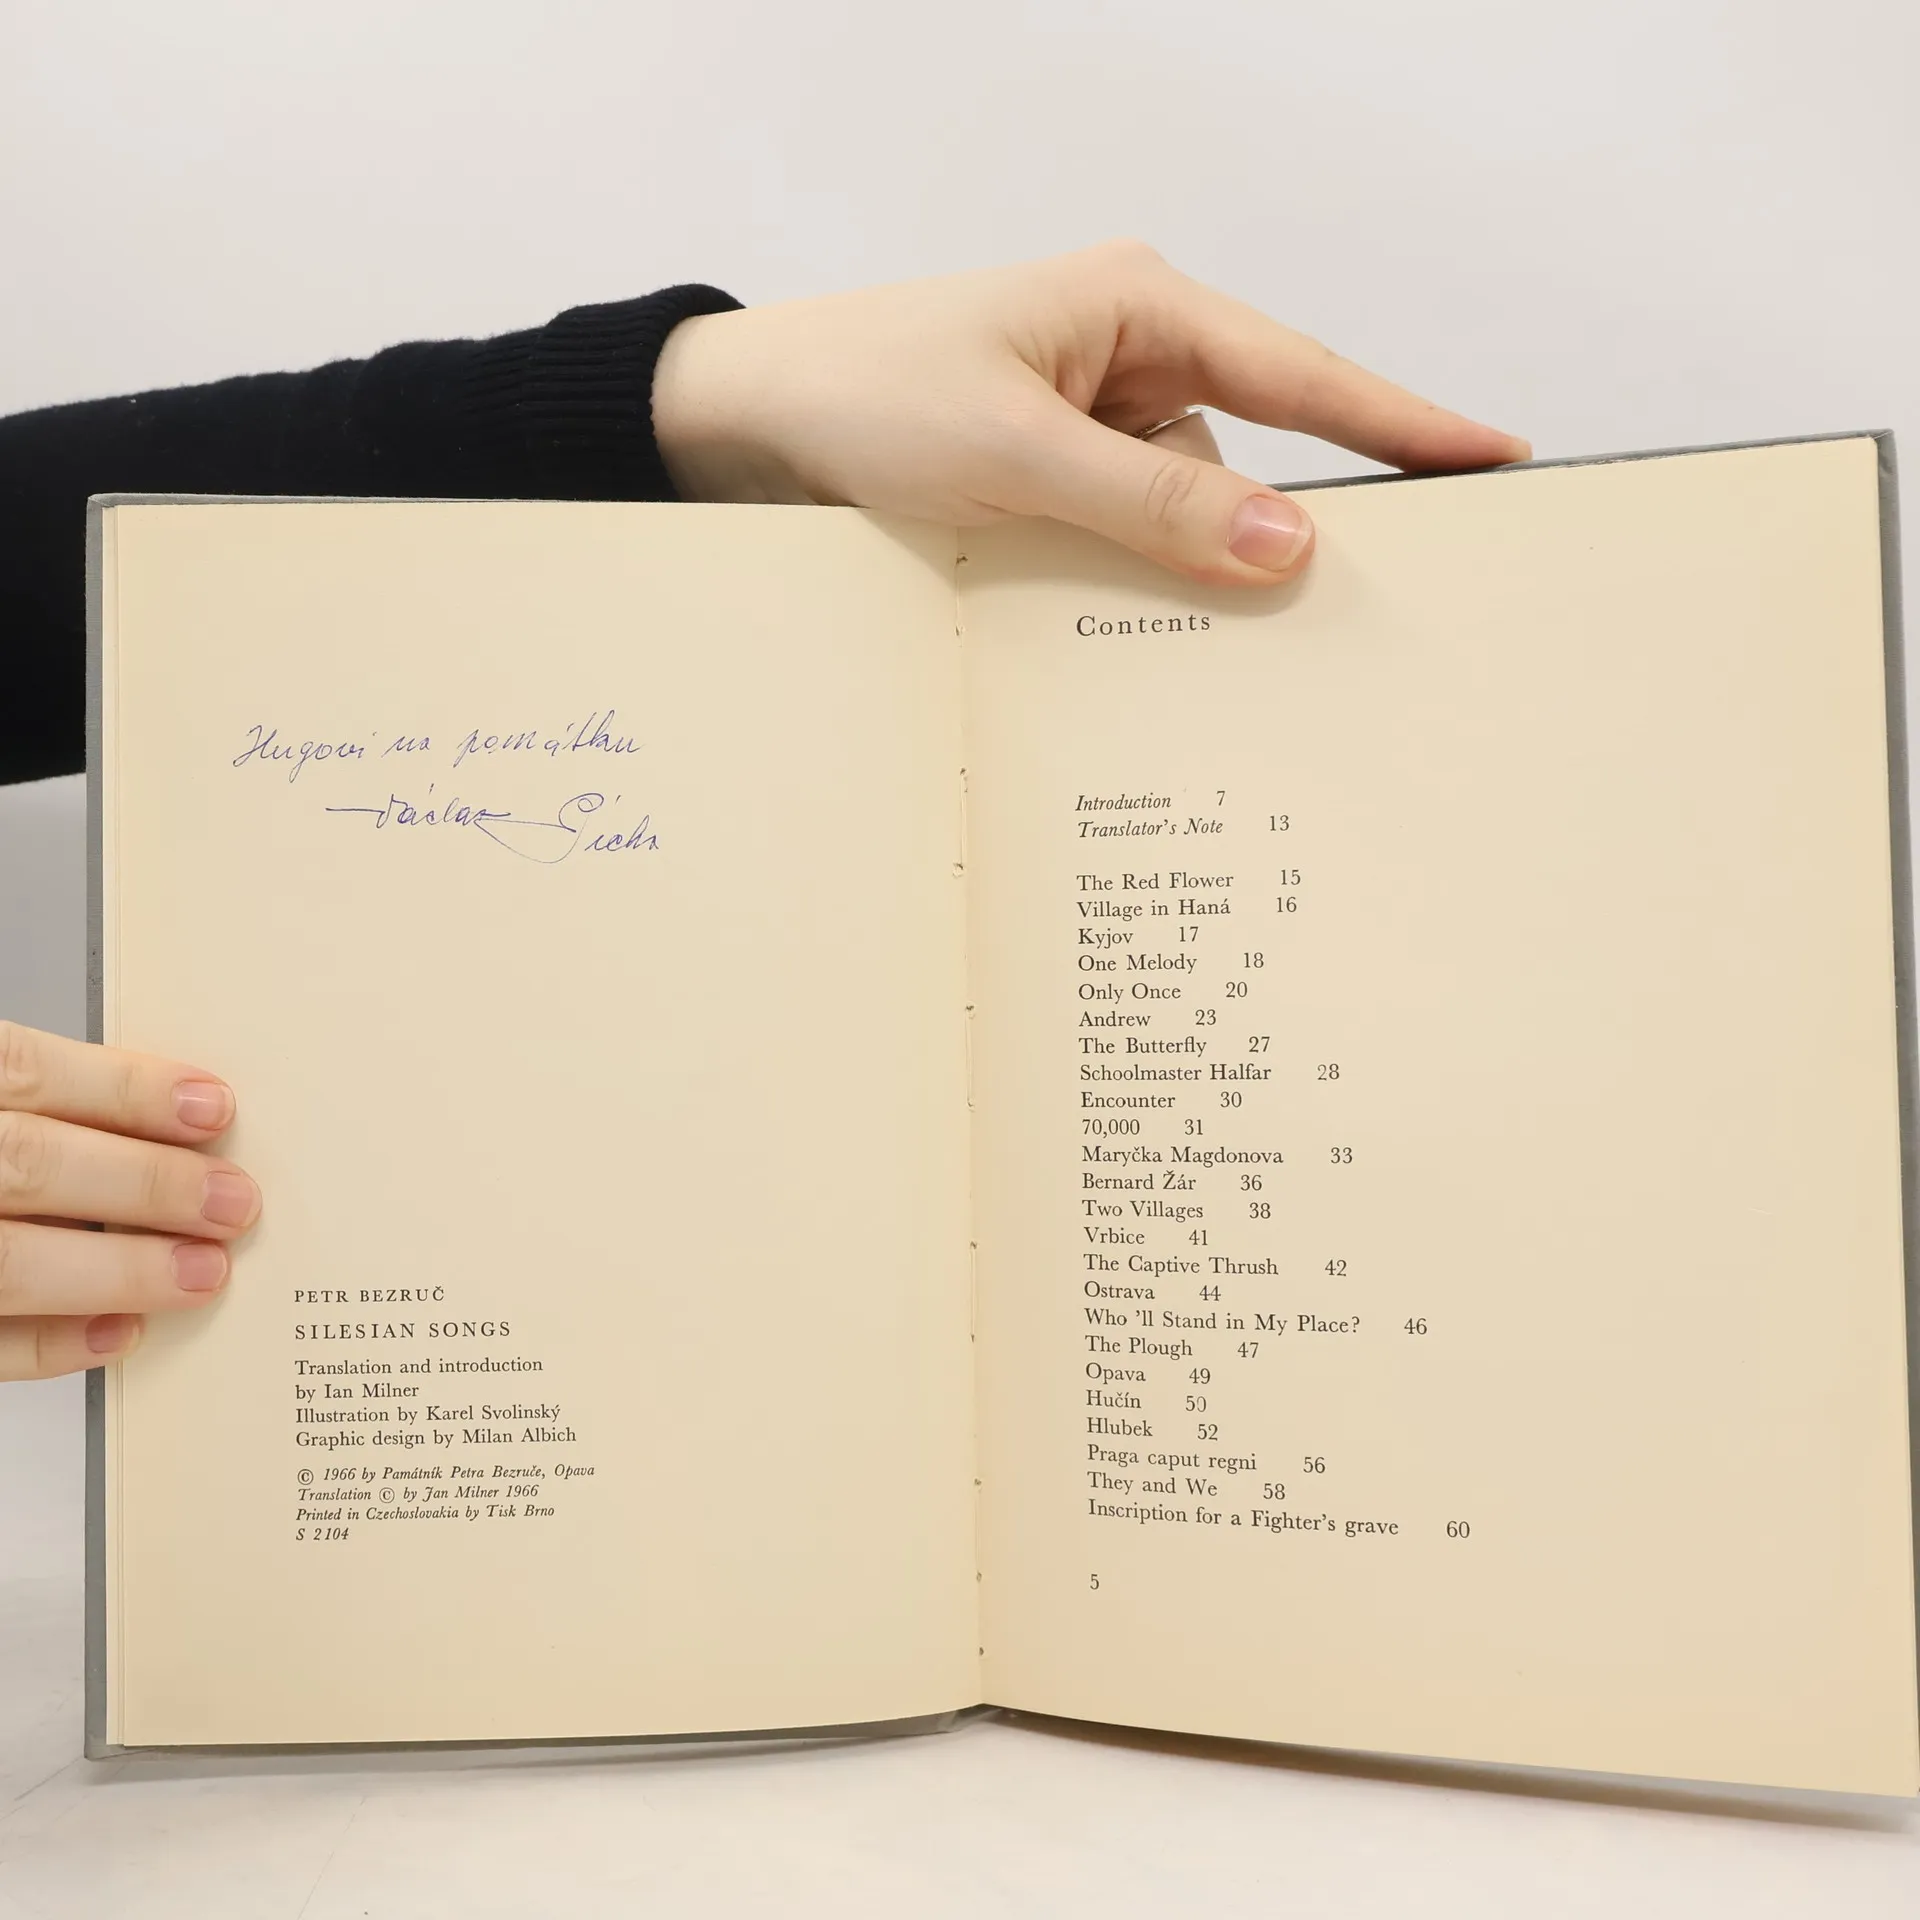 Hugovi na památku
Václav
PETR BEZRUČ
SILESIAN SONGS
Translation and introduction
by Ian Milner
Illustration by Karel Svolinský
Graphic design by Milan Albich
© 1966 by Památník Petra Bezruče, Opava
Translation © by Jan Milner 1966
Printed in Czechoslovakia by Tisk Brno
S 2104
Contents
Introduction 7
Translator's Note 13
The Red Flower 15
Village in Haná 16
Kyjov 17
One Melody 18
Only Once 20
Andrew 23
The Butterfly 27
Schoolmaster Halfar 28
Encounter 30
70,000 31
Maryčka Magdonova 33
Bernard Žár 36
Two Villages 38
Vrbice 41
The Captive Thrush 42
Ostrava 44
Who 'll Stand in My Place? 46
The Plough 47
Opava 49
Hučín 50
Hlubek 52
Praga caput regni 56
They and We 58
Inscription for a Fighter's grave 60
5